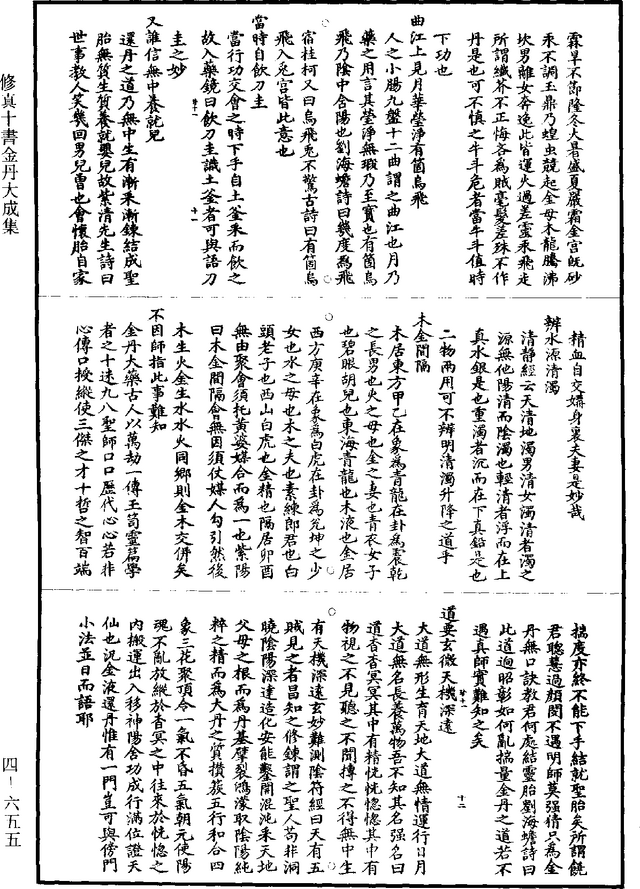 霖旱不節隆冬大暑盛夏嚴霜金宮既砂
汞不調玉鼎乃蝗虫競起金母木龍騰沸
坎男離女奔逸此皆運火過差靈汞飛走
所謂纖芥不正悔吝為賊毫髮差殊不作
丹是也可不慎之牛斗危者當牛斗值時
下功也
曲江上見月華瑩淨有箇烏飛
人之小腸九盤十二曲謂之曲江也月乃
藥之用言其瑩淨無瑕乃至寶也有箇烏
飛乃陰中含陽也劉海蟾詩曰幾度為飛
宿桂柯又曰烏飛兎不驚古詩曰有箇烏
飛入兎宮皆此意也
當時自飲刀圭
當行功交會之時下手自土釜釆而飲之
故入藥鏡曰飲刀圭識土釜者可與語刀
圭之妙
又誰信無中養就兒
還丹之道乃無中生有漸釆漸鍊結成聖
胎無質生質養就嬰兒故紫清先生詩曰
世事教人笑幾回男兒曹也會懷胎自家
精血自交媾身裏夫妻是妙哉
辨水源清濁
清靜經云天清地濁男清女濁清者濁之
源無他陽清而陰濁也輕清者浮而在上
真水銀是也重濁者沉而在下真鉛是也
二物兩用可不辨明清濁升降之道乎
木金間隔
木居東方甲乙在象為青龍在卦為震乾
之長男也火之母也金之妻也青衣女子
也碧眼胡兒也東海青龍也木液也金居
西方庚辛在象為白虎在卦為兌坤之少
女也水之母也木之夫也素練郎君也白
頭老子也西山白虎也金精也隔居卯酉
無由聚會須托黃婆媒合而為一也紫陽
曰木金間隔會無因須仗媒人勾引然後
木生火金生水水火同鄉則金木交併矣
不因師指此事難知
金丹大藥古人以萬劫一傳玉笥靈篇學
者之十迷九八聖師口口歷代心心若非
心傳口授縱使三傑之才十哲之智百端
揣度亦終不能下手結就聖胎矣所謂饒
君聰慧過顏閔不遇明師莫强猜只為金
丹無口訣教君何處結靈胎劉海蟾詩曰
此道逈昭彰如何亂揣量金丹之道若不
遇真師實難知之矣
道要玄微天機深遠
大道無形生育天地大道無情運行日月
大道無名長養萬物吾不知其名强名曰
道杳杳冥冥其中有精恍恍惚惚其中有
物視之不見聽之不聞摶之不得無中生
有天機深遠玄妙難測陰符經曰天有五
賊見之者昌知之修鍊謂之聖人苟非洞
曉陰陽深達造化安能鑿開混沌釆天地
父母之根而為丹基擘裂鴻濛取陰陽純
粹之精而為大丹之質攢簇五行和合四
象三花聚頂令一氣不昏五氣朝元使陽
魂不亂放縱於杳冥之中往來於恍惚之
內搬運出入移神陽舍功成行滿位證天
仙也況金液還丹惟有一門豈可與傍門
小法並日而語耶
修真十書金丹大成集
四-六五五